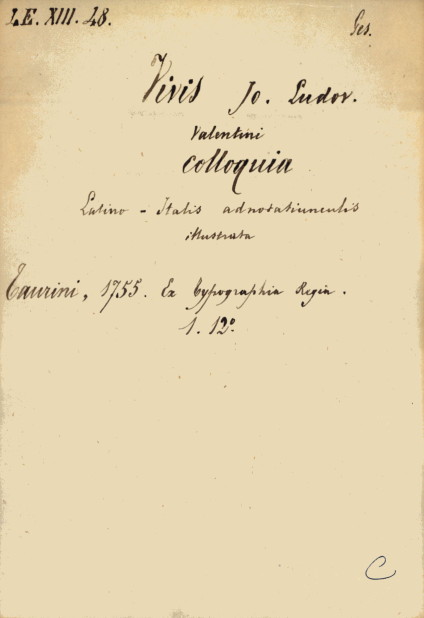 I.E. XIII. 48.
Ges.
Vivis Jo. Ludov.
Valentini
Colloquia
Latino - Italis adnotatiunculis
illustrata
Taurini, 1755. Ex Typographia Regia.
1. 12°
C